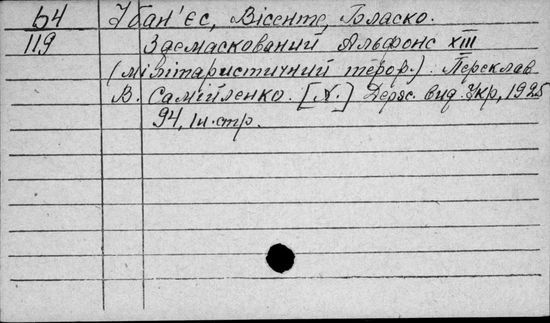 64 Ібан'єс, Вісенте, Бласко.
119 Здемаскований Альфонс XIII
(мілітаристичний терор.). Переклав
В. Самійленко. [N.] Держ. вид. Укр, 1925
94, 1н. стр.